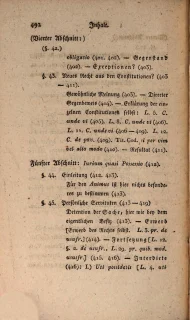 492 Inhalt.
(Vierter Abschnitt:)
(§. 42.)
obligatio (401. 402). — Gegenstand
(402). — Exceptionen? (403).
§. 43. Neues Recht aus den Constitutionen? (403
— 411).
Gewöhnliche Meinung (403). — Directer
Gegenbeweis (404). — Erklärung der ein-
zelnen Constitutionen selbst: L. 8. C.
unde vi (405). — L. 8. C. unde vi (406).
— L. 11. C. unde vi (409). — L. 12.
C. de poss. (409). Tit. Cod. si per vim
vel alio modo (410). — Resultat (411).
Fünfter Abschnitt: Iurium quasi Possessio (412).
§. 44. Einleitung (412. 413).
Für den Animus ist hier nichts besonde-
res zu bestimmen (413).
§. 45. Persönliche Servituten (413 — 419)
Detention der Sache; hier wie bey dem
eigentlichen Besitz (413). — Erwerb
(414). — Fortsetzung
Interdicte
Uti possidetis (L. 4. uti